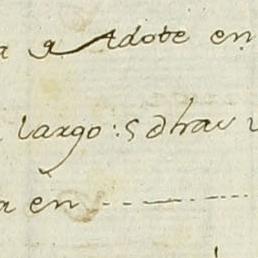 a q Adote en
largo: s dhav
a en